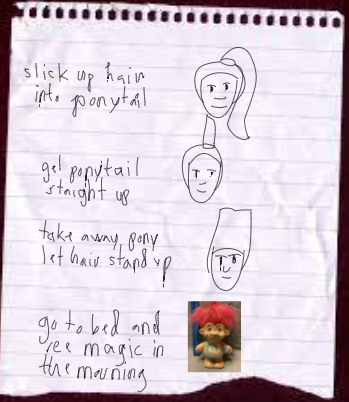 slick up hair
into ponytail
gel ponytail
staight up
take away pony
let hair stand up
go to bed and
see magic in
the mourning